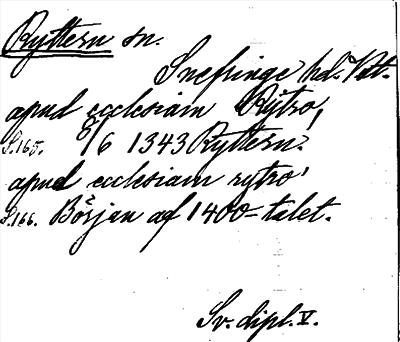 Ryttern sn.
Snefringe hd. Vstm.
apud ecclesiam Rytro,
S.165. 8/6 1343 Ryttern.
apud ecclesiam rytro'
S.166. Början af 1400-talet.
Sv. dipl. V.